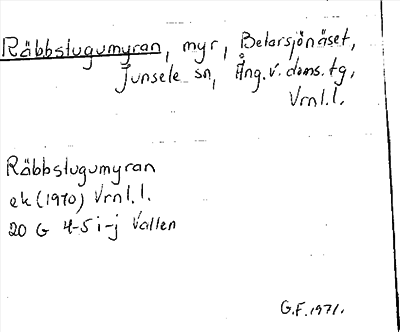 Räbbstugumyran, myr, Betarsjönäset,
Junsele sn, Ång. v. doms. tg,
Vrnl.l.
Räbbstugumyran
ek (1970) Vrnl.l.
20 G 4-5 i-j Vallen
G.F. 1971.